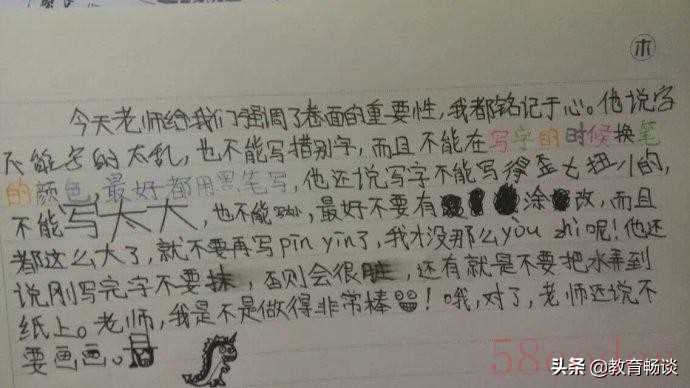 木
今天老师给我们强调了卷面的重要性,我都铭记于心。他说字
不能写的太乱,也不能写错别字,而且不能在写字的时候换笔
的颜色,最好都用黑笔写,他还说写字不能写得歪七扭八的,
不能写太大,也不能写太小,最好不要有涂改,而且
都这么大了,就不要再写pīn yīn了,我才没那么yòu zhì呢!他还
说刚写完字不要抹,否则会很脏,还有就是不要把水弄到
纸上。老师,我是不是做得非常棒!哦,对了,老师还说不
要画画。
头条 @教育畅谈